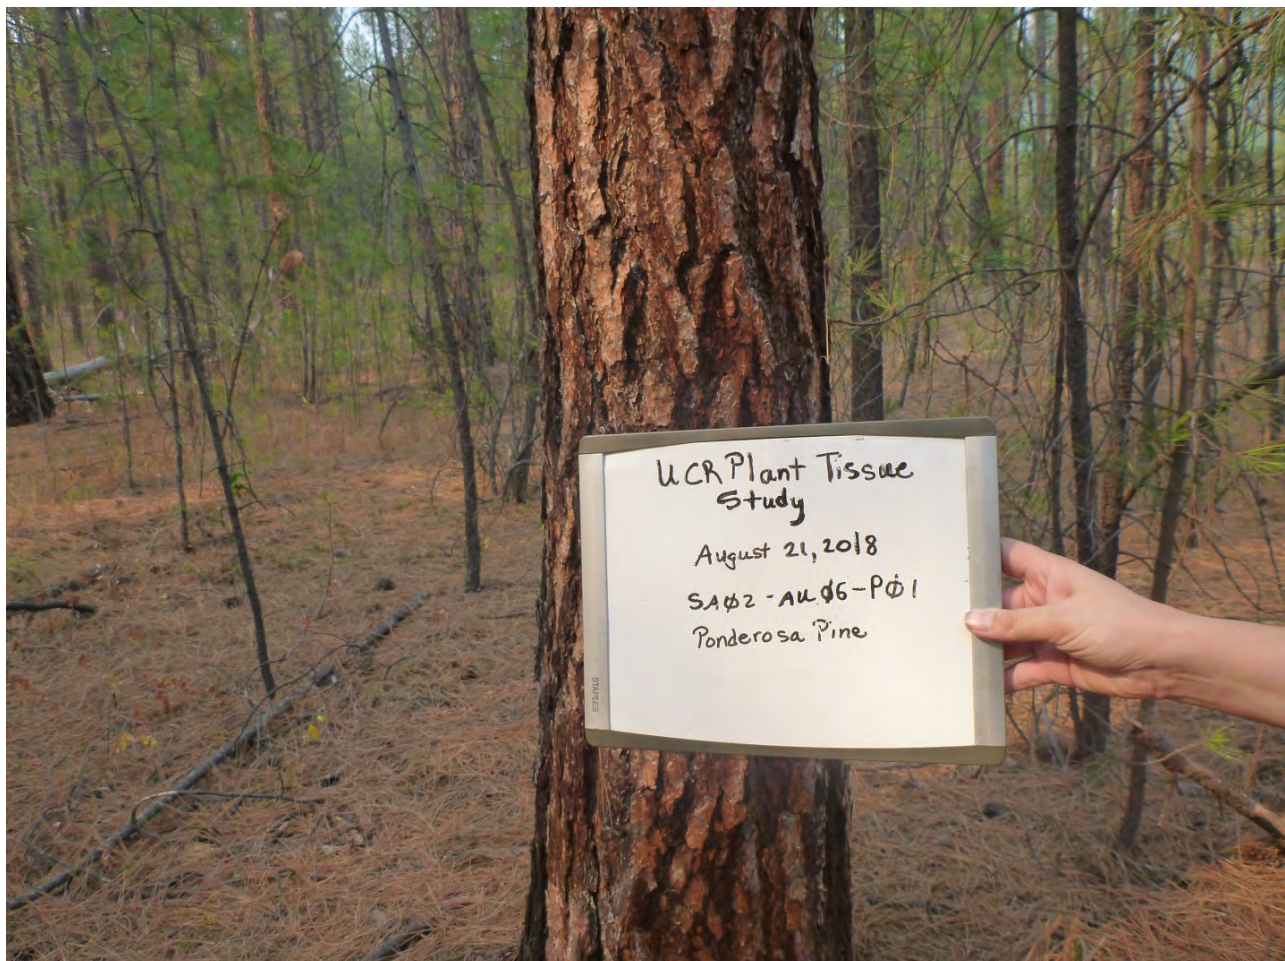 UCR Plant Tissue
Study
August 21, 2018
SA02-AU06-P01
Ponderosa Pine
STAPLES